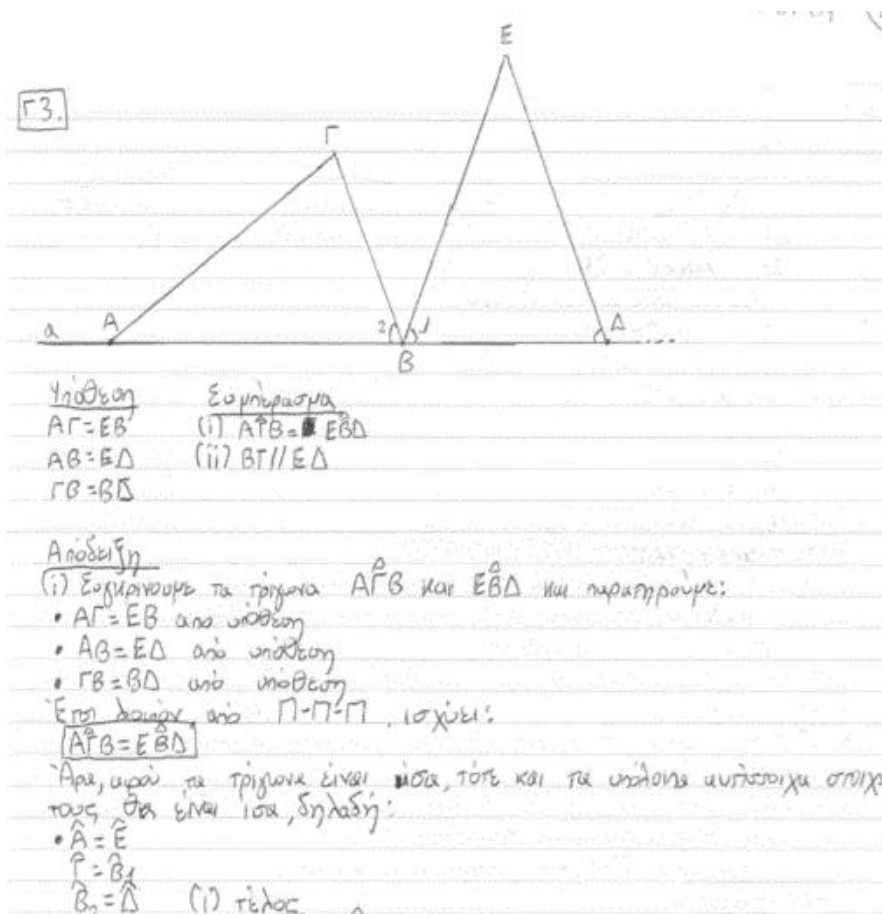 Γ3.
Ε
Γ
α Α 2 1 Δ
Β
Υπόθεση Συμπέρασμα
ΑΓ=ΕΒ (i) ΑΓ̂Β= ΕΒ̂Δ
ΑΒ=ΕΔ (ii) ΒΓ//ΕΔ
ΓΒ=ΒΔ
Απόδειξη
(i) Συγκρίνουμε τα τρίγωνα ΑΓ̂Β και ΕΒ̂Δ και παρατηρούμε:
• ΑΓ=ΕΒ από υπόθεση
• ΑΒ=ΕΔ από υπόθεση
• ΓΒ=ΒΔ από υπόθεση
Έτσι λοιπόν, από Π-Π-Π, ισχύει:
ΑΓ̂Β=ΕΒ̂Δ
Άρα, αφού τα τρίγωνα είναι ίσα, τότε και τα υπόλοιπα αντίστοιχα στοιχ
τους θα είναι ίσα, δηλαδή:
• Α̂=Ε̂
Γ̂=Β̂1
Β̂2=Δ̂ (i) τέλος